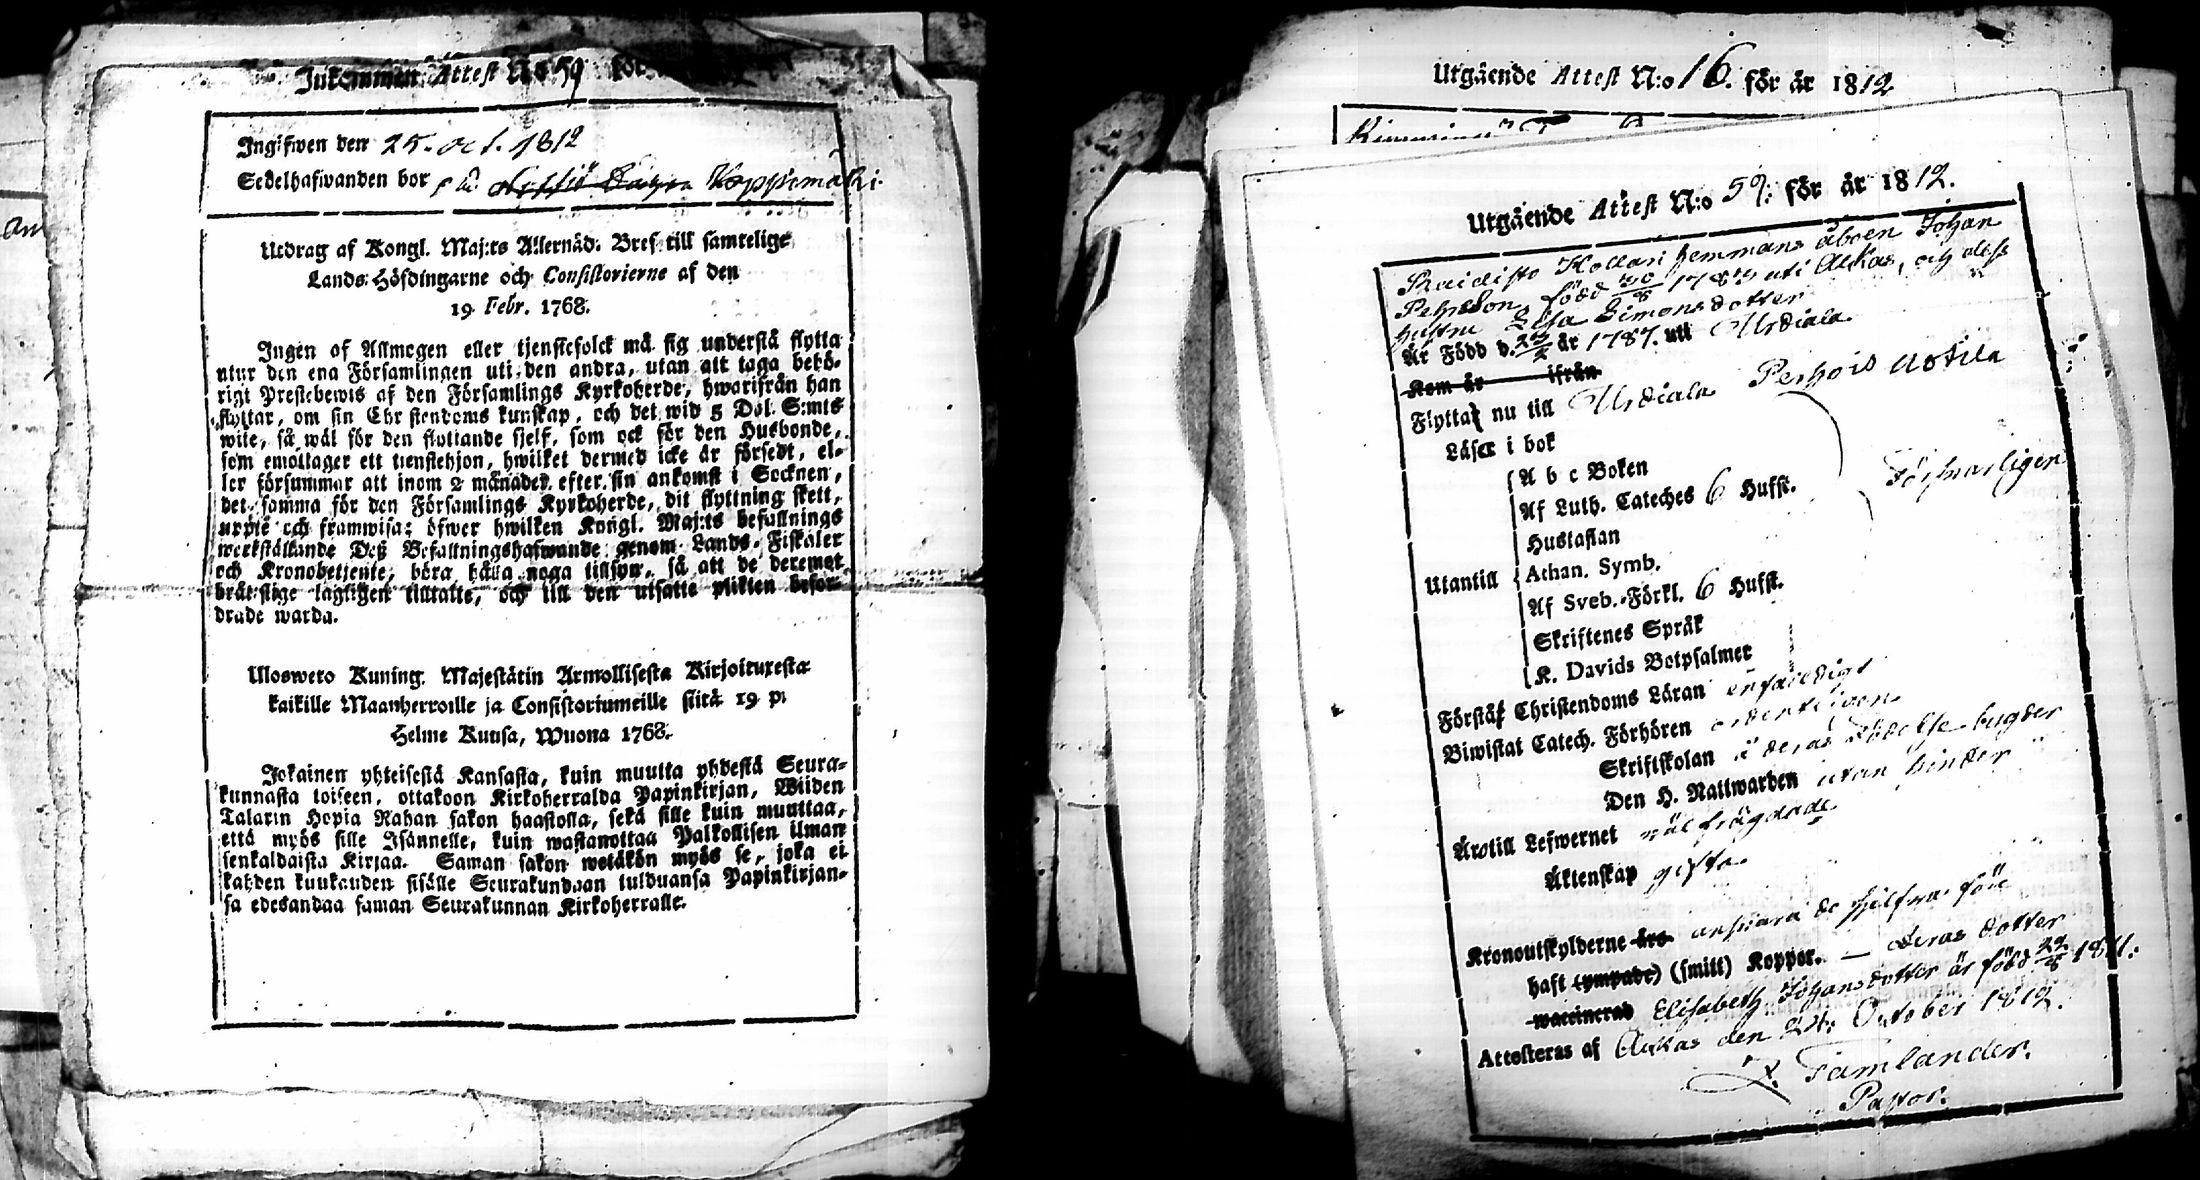 Inkommen Attest No 59 för
Ingifwen den 25. Oct. 1812
Sedelhafwanden bor på Koppimäki.
Utdrag af Kongl. Maj:ts Allernåd. Bref till samtelige
Lands-Höfdingarne och Consistorierne af den
19 Febr. 1768.
Ingen af Allmogen eller tjenstefolck må sig understå flytta
utur den ena Församlingen uti den andra, utan att taga behö-
rigt Prestebewis af den Församlings Kyrkoherde, hwarifrån han
flyttar, om sin Christendoms kunskap, och det wid 5 Dal. S:mts
wite, så wäl för den flyttande sjelf, som ock för den Husbonde,
som emottager ett tienstehjon, hwilket dermed icke är försedt, el-
ler försummar att inom 2 månader efter sin ankomst i Socknen,
det samma för den Församlings Kyrkoherde, dit flyttning skett,
upte och framwisa; öfwer hwilken Kongl. Maj:ts befallnings
werkställande Deß Befallningshafwande genom Lands-Fiskaler
och Kronobetjente, böra hålla noga tillsyn, så att de deremot
bråtslige lagligen tilltalte, och till den utsatte plikten befor-
drade warda.
Ulosweto Kuning. Majestätin Armollisesta Kirjoituxesta
kaikille Maanherroille ja Consistoriumeille siitä 19 p.
Helme Kuusa, Wuona 1768.
Jokainen yhteisestä Kansasta, kuin muutta yhdestä Seura-
kunnasta toiseen, ottakoon Kirkoherralda Papinkirjan, Wiiden
Talarin Hopia Rahan sakon haastolla, sekä sille kuin muuttaa,
että myös sille Isännelle, kuin wastanottaa Palkollisen ilman
senkaldaista Kirjaa. Saman sakon wetäkön myös se, joka ei
kahden kuukauden sisälle Seurakundaan tulduansa Papinkirjan-
sa edesandaa saman Seurakunnan Kirkoherralle.
Utgående Attest N:o 16. för år 1812
Utgående Attest N:o 59: för år 1812.
Kollari hemmans åboen Johan
Pehrsson, född 30/8 uti Akkas, och dess
hustru Lisa Simonsdotter
Är Född d. år 1787. uti Urdiala
Kom år ifrån
Flyttar nu till Urdiala Perhois Aotila
Läser i bok
A b c Boken
Af Luth. Cateches 6 Hufst.
Hustaflan
Försvarligen
Utantill
Athan. Symb.
Af Sveb. Förkl. 6 Hufst.
Skriftenes Språk
K. Davids Botpsalmer
Förstår Christendoms Läran enfaldigt
Biwistat Catech. Förhören
Skriftskolan i deras födelse bygder
Den H. Nattwarden utan hinder
Är till Lefwernet välfrägdade
Äktenskap gifta.
Kronoutskylderne äro ansvara de sjelfwa före
haft (ympade) (smitt) Koppor. — Deras dotter
waccinerad Elisabeth Johansdotter är född 22/8 1811.
Attesteras af Akkas den 24. October 1812.
Tamlander.
Pastor.